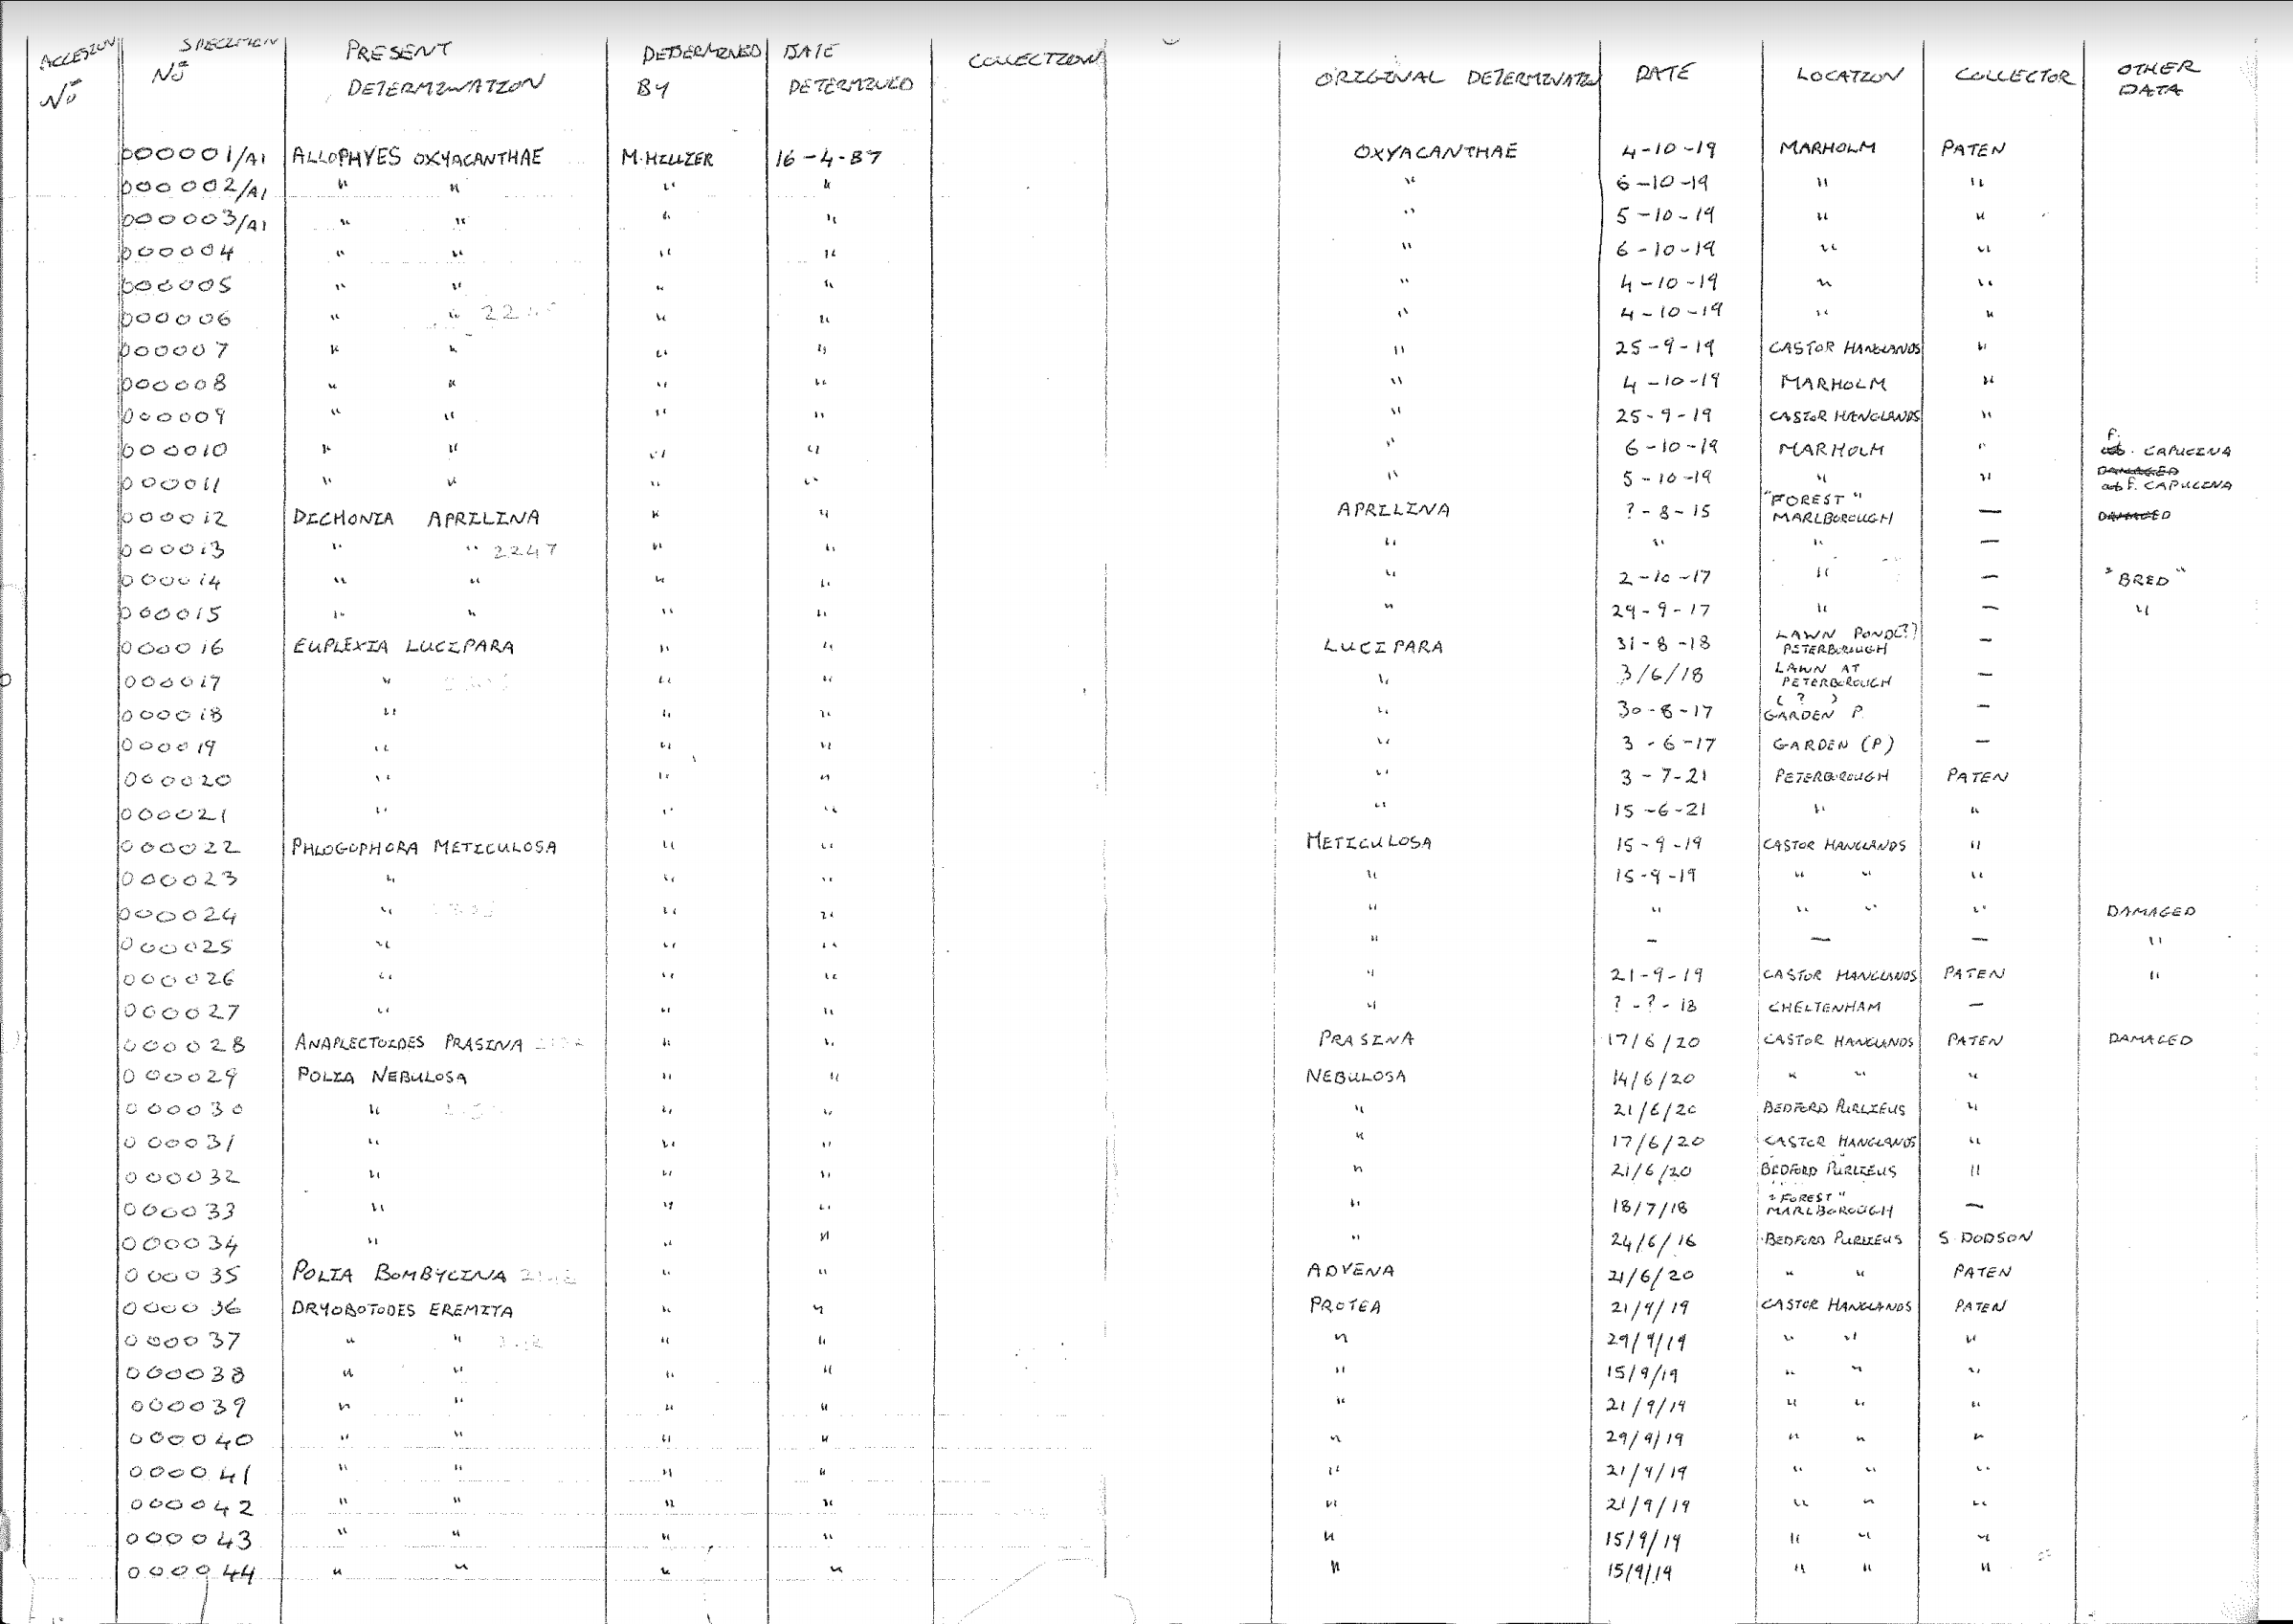 ACCESION Nº SPECIMEN Nº PRESENT DETERMINATION DETERMINED BY DATE DETERMINED COLLECTION ORIGINAL DETERMINATION DATE LOCATION COLLECTOR OTHER DATA
000001/A1 ALLOPHYES OXYACANTHAE M. HILLIER 16-4-87 OXYACANTHAE 4-10-19 MARHOLM PATEN
000002/A1 " " " " " 6-10-19 " "
000003/A1 " " " " " 5-10-19 " "
000004 " " " " " 6-10-19 " "
000005 " " " " " 4-10-19 " "
000006 " " " " " 4-10-19 " "
000007 " " " " " 25-9-19 CASTOR HANGLANDS "
000008 " " " " " 4-10-19 MARHOLM "
000009 " " " " " 25-9-19 CASTOR HANGLANDS "
000010 " " " " " 6-10-19 MARHOLM " ab. f. CAPUCINA
000011 " " " " " 5-10-19 " " DAMAGED ab f. CAPUCINA
000012 DICHONIA APRILINA " " APRILINA ?-8-15 "FOREST" MARLBOROUGH — DAMAGED
000013 " " 2247 " " " " " —
000014 " " " " " 2-10-17 " — "BRED"
000015 " " " " " 29-9-17 " — "
000016 EUPLEXIA LUCIPARA " " LUCIPARA 31-8-18 LAWN POND(?) PETERBOROUGH —
000017 " " " " 3/6/18 LAWN AT PETERBOROUGH —
000018 " " " " 30-8-17 (?) GARDEN P. —
000019 " " " " 3-6-17 GARDEN (P) —
000020 " " " " 3-7-21 PETERBOROUGH PATEN
000021 " " " " 15-6-21 " "
000022 PHLOGOPHORA METICULOSA " " METICULOSA 15-9-19 CASTOR HANGLANDS "
000023 " " " " 15-9-19 " " "
000024 " " " " " " " " DAMAGED
000025 " " " " — — — "
000026 " " " " 21-9-19 CASTOR HANGLANDS PATEN "
000027 " " " " ?-?-18 CHELTENHAM —
000028 ANAPLECTOIDES PRASINA " " PRASINA 17/6/20 CASTOR HANGLANDS PATEN DAMAGED
000029 POLIA NEBULOSA " " NEBULOSA 14/6/20 " " "
000030 " " " " 21/6/20 BEDFORD PURLIEUS "
000031 " " " " 17/6/20 CASTOR HANGLANDS "
000032 " " " " 21/6/20 BEDFORD PURLIEUS "
000033 " " " " 18/7/18 "FOREST" MARLBOROUGH —
000034 " " " " 24/6/16 BEDFORD PURLIEUS S. DODSON
000035 POLIA BOMBYCINA " " ADVENA 21/6/20 " " PATEN
000036 DRYOBOTODES EREMITA " " PROTEA 21/9/19 CASTOR HANGLANDS PATEN
000037 " " " " " 29/9/19 " " "
000038 " " " " " 15/9/19 " " "
000039 " " " " " 21/9/19 " " "
000040 " " " " " 29/9/19 " " "
000041 " " " " " 21/9/19 " " "
000042 " " " " " 21/9/19 " " "
000043 " " " " " 15/9/19 " " "
000044 " " " " " 15/9/19 " " "